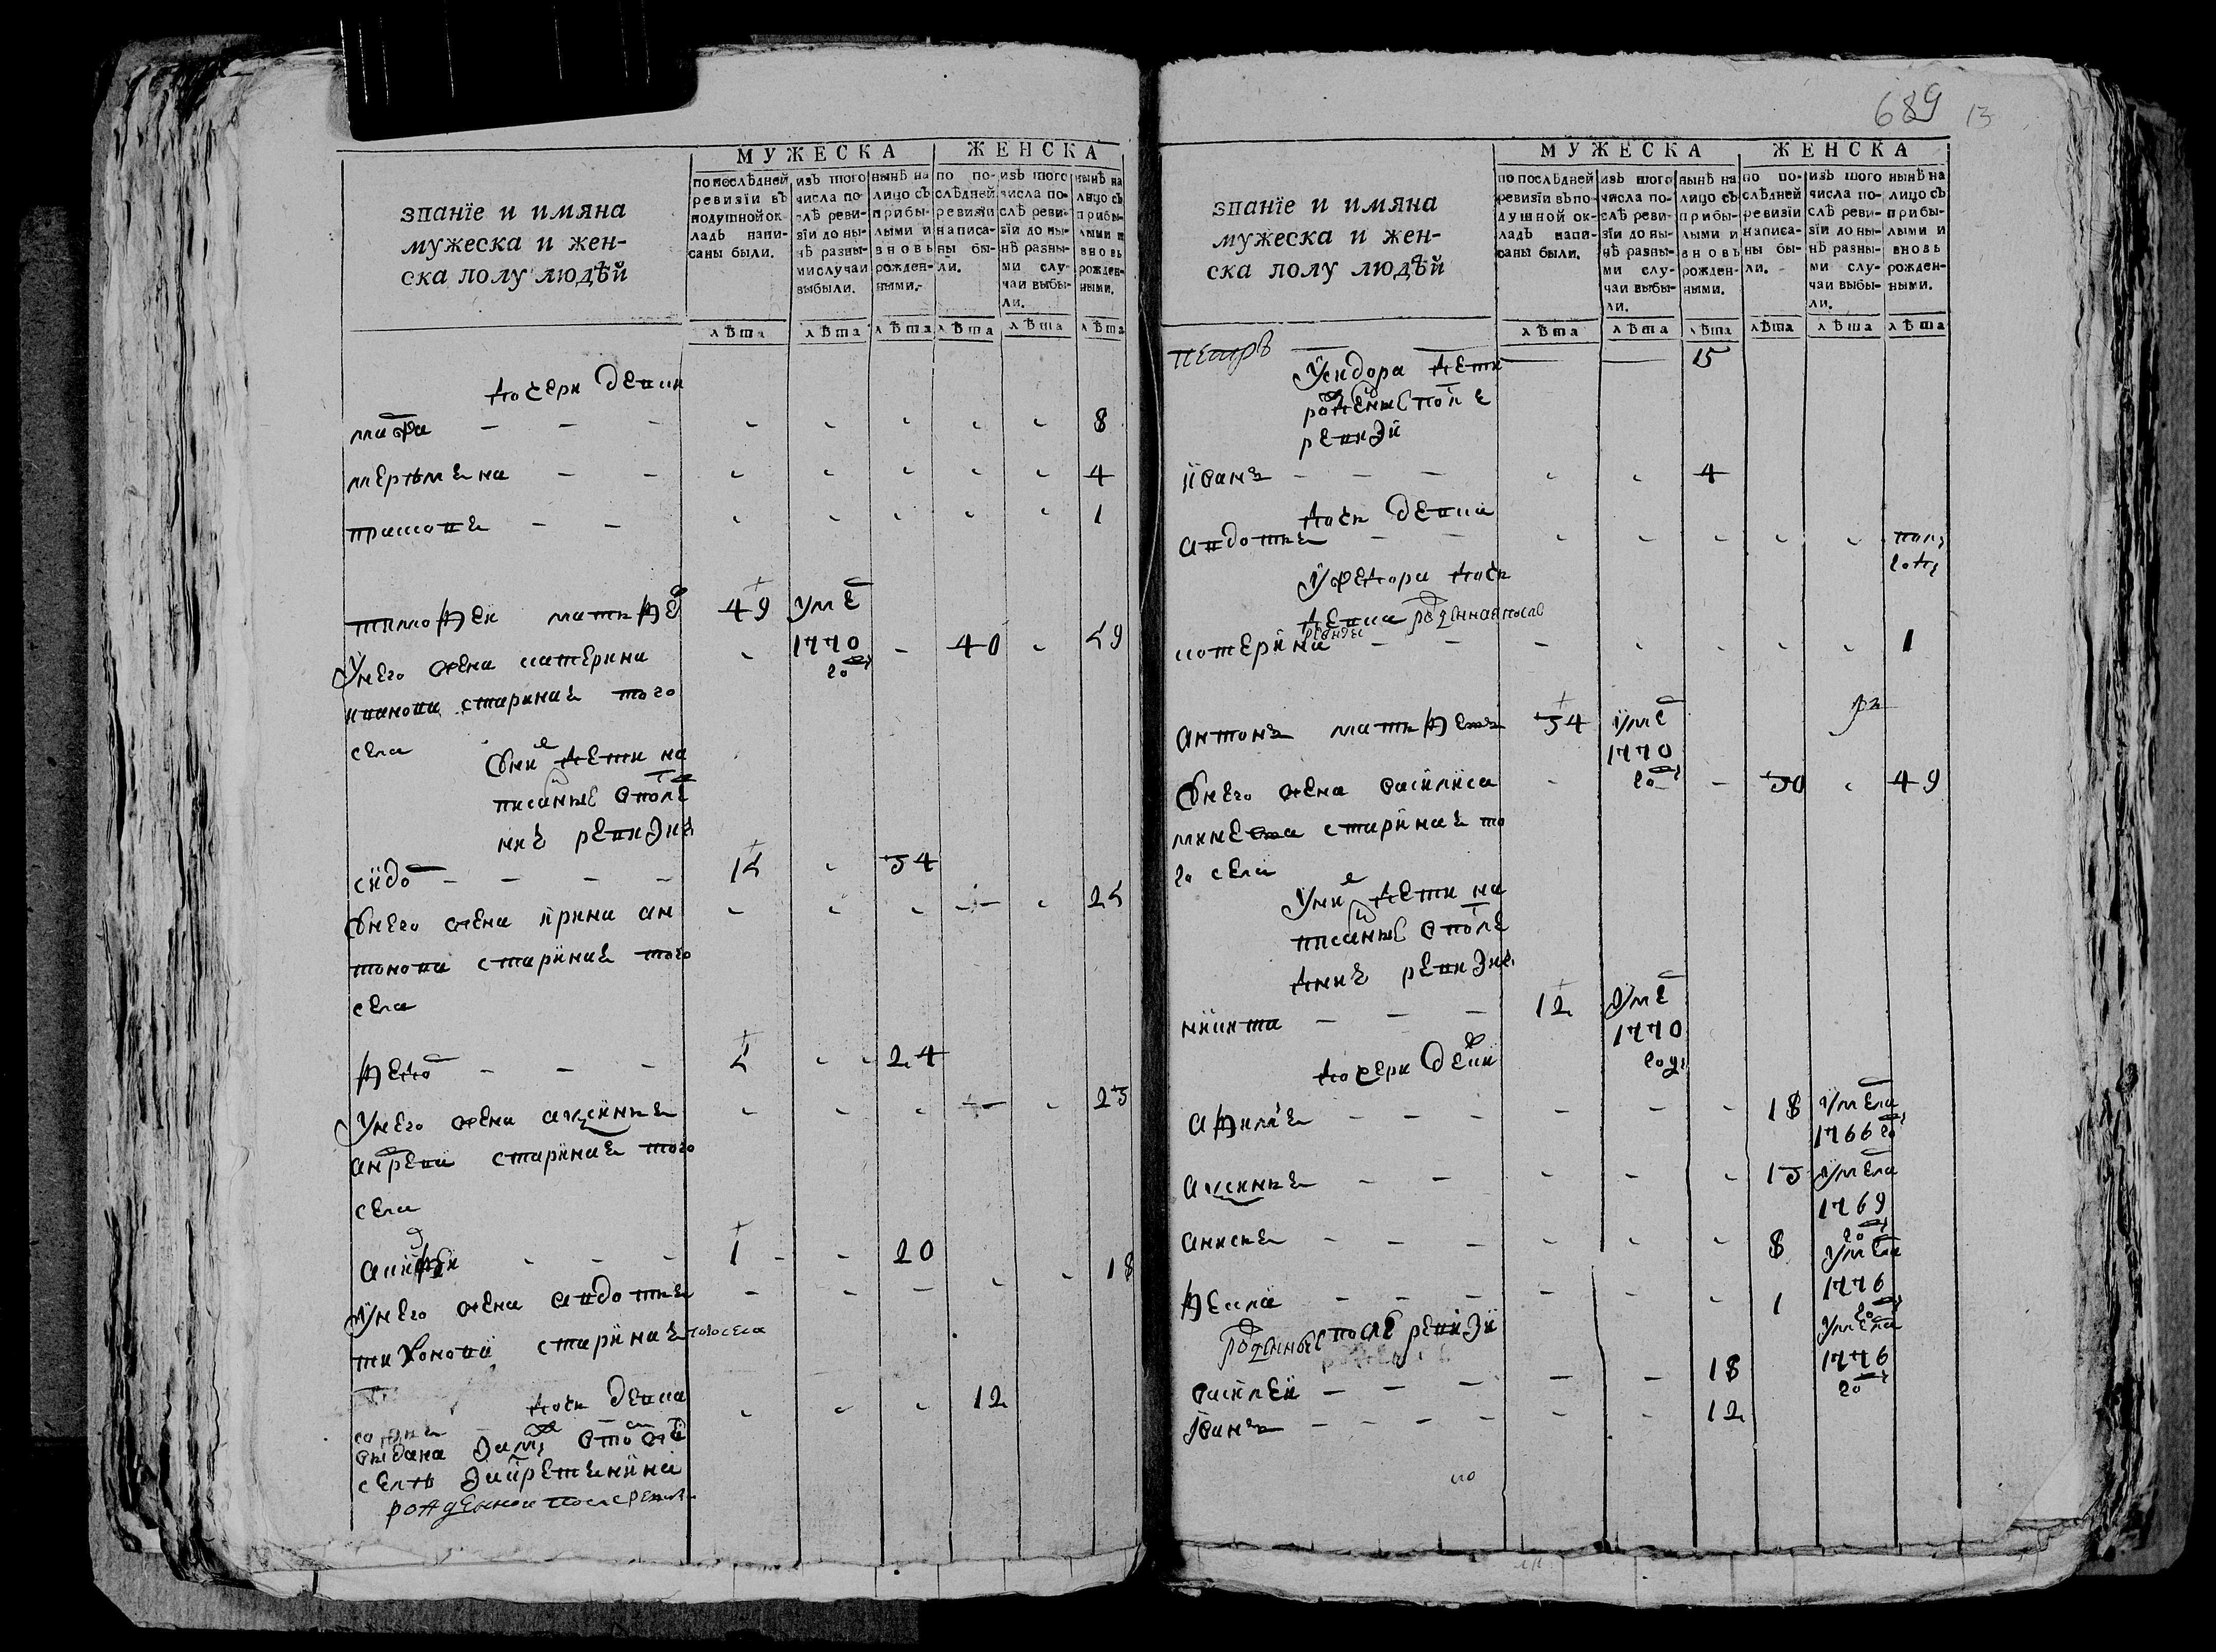 МУЖЕСКА ЖЕНСКА
званїе и имяна
мужеска и жен-
ска полу людѣй
по послѣдней
ревизїи въ
подушной ок-
ладъ напи-
саны были.
изъ того
числа по-
слѣ реви-
зїи до ны-
нѣ разны-
ми случаи
выбыли.
нынѣ на
лицо съ
прибы-
лыми и
вновь
рожден-
ными.
по по-
слѣдней
ревизїи
написа-
ны бы-
ли.
изъ того
числа по-
слѣ реви-
зїи до ны-
нѣ разны-
ми слу-
чаи выбы-
ли.
нынѣ на
лицо съ
прибы-
лыми и
вновь
рожден-
ными.
лѣта лѣта лѣта лѣта лѣта лѣта
дочери девки
мавра - - - 8
- - 4
- - 1
тимофей матфѣе 49 уме
1770
го
у него жена катерина - - 40 - 59
иванова старинная того
села
у них дети на
писанные в после
ней ревизии
сидо - - - - 15 - 34
у него жена ирина ан - - - - - 25
тонова старинная того
села
федо - - - 5 - - 24
у него жена аксинья - - - - - 23
андрева старинная того
села
1 - - 20
у него жена авдотья - - - - - 18
тихонова старинная того села
дочь девка - - - 12
выдана замуж в то ж
селе за крестьянина
рожденная после ревизии
689 13
МУЖЕСКА ЖЕНСКА
званїе и имяна
мужеска и жен-
ска полу людѣй
по послѣдней
ревизїи въ по-
душной ок-
ладъ напи-
саны были.
изъ того
числа по-
слѣ реви-
зїи до ны-
нѣ разны-
ми слу-
чаи выбы-
ли.
нынѣ на
лицо съ
прибы-
лыми и
вновь
рожден-
ными.
по по-
слѣдней
ревизїи
написа-
ны бы-
ли.
изъ того
числа по-
слѣ реви-
зїи до ны-
нѣ разны-
ми слу-
чаи выбы-
ли.
нынѣ на
лицо съ
прибы-
лыми и
вновь
рожден-
ными.
лѣта лѣта лѣта лѣта лѣта лѣта
петръ 15
у сидора дети
рожденные после
ревизи
иванъ - - - - - 4
дочь девка
авдотья - - - - - - - пол
года
у федора дочь
девка рожденная после
ревизи
катерина - - - - - - - 1
антонъ матфеевъ 34 уме
1770
го
у него жена василиса - - 30 - 49
минеева старинная то
го села
у них дети на
писанные в после
дней ревизии
никита - - - 12 уме
1770
году
дочери девки
афимья - - - - - - 18 умела
1766 го
аксинья - - - - - 13 умела
1769
го
анисья - - - - - - 8 умела
1776
го
фекла - - - - - - 1 умела
1776
го
рожденные после ревизи
василей - - - - - 18
иванъ - - - - - - 12